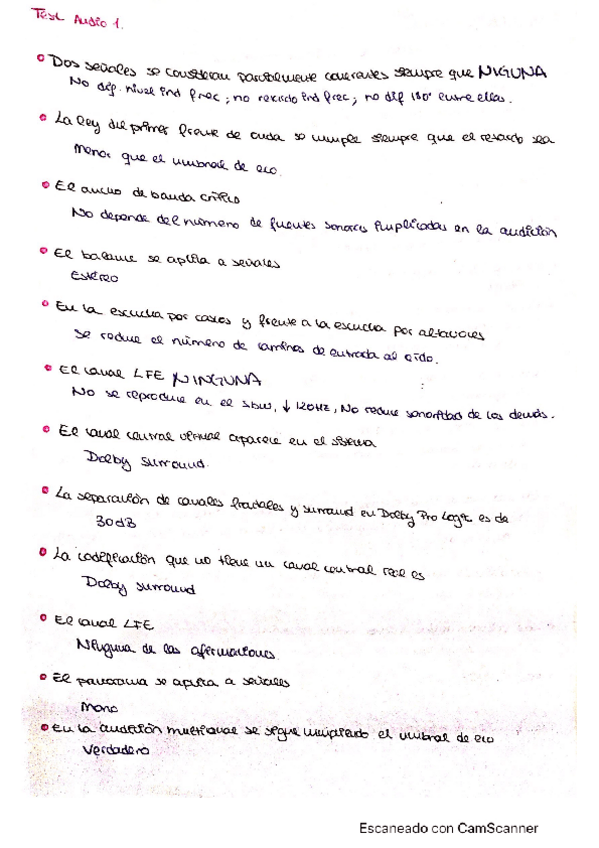 Test Audio 1.
Dos señales se consideran parcialmente coherentes siempre que NIGUNA
No dif. nivel ind frec; no retardo ind frec; no dif 180° entre ellas.
La ley del primer frente de onda se cumple siempre que el retardo sea
Menor que el umbral de eco.
El ancho de banda crítico
No depende del número de fuentes sonoras implicadas en la audición
El balance se aplica a señales
Estéreo
En la escucha por cascos y frente a la escucha por altavoces
Se reduce el número de caminos de entrada al oído.
El canal LFE NINGUNA
No se reproduce en el sbw, ↓ 120Hz, No reduce sonoridad de los demás.
El canal central virtual aparece en el sistema
Dolby surround.
La separación de canales frontales y surround en Dolby Pro Logic es de
30dB
La codificación que no tiene un canal central real es
Dolby surround
El canal LFE
Ninguna de las afirmaciones
El panorama se aplica a señales
Mono
En la audición multicanal se sigue cumpliendo el umbral de eco
Verdadero
Escaneado con CamScanner